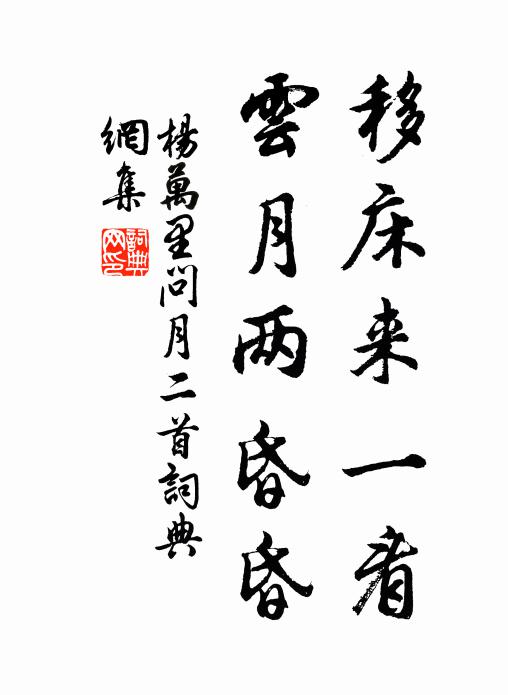 移床来一看
雲月两昏昏
楊萬里問月二首詞典
網集
詞典网印